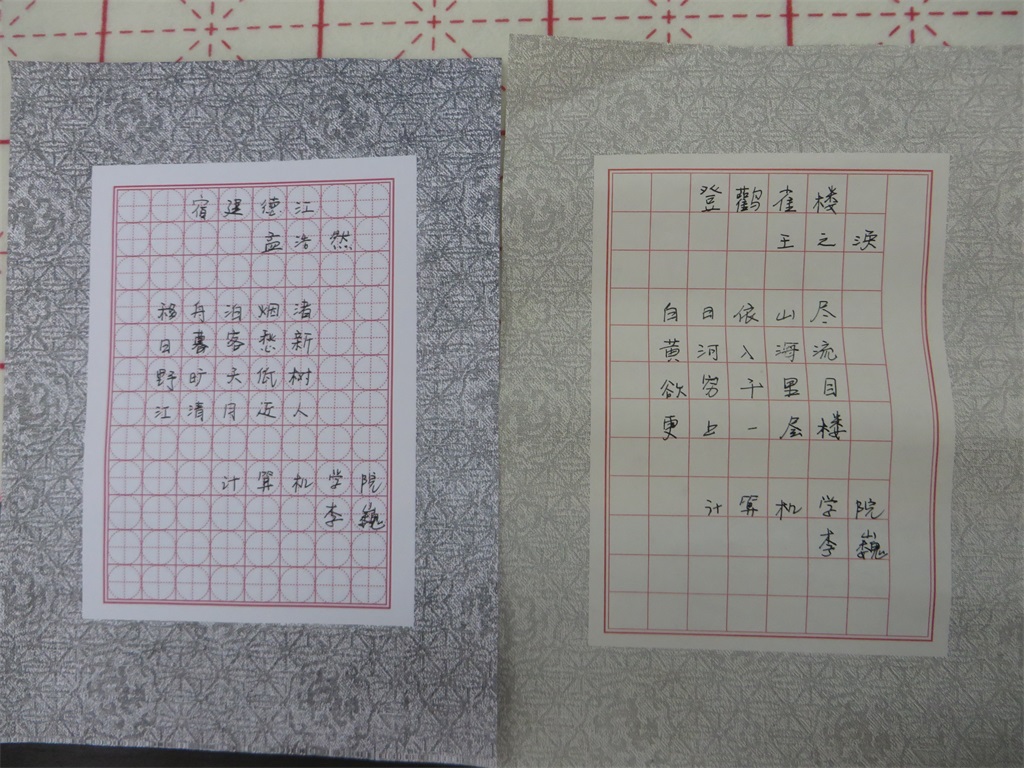 宿建德江
孟浩然
移舟泊烟渚
日暮客愁新
野旷天低树
江清月近人
计算机学院
李巍
登鹳雀楼
王之涣
白日依山尽
黄河入海流
欲穷千里目
更上一层楼
计算机学院
李巍